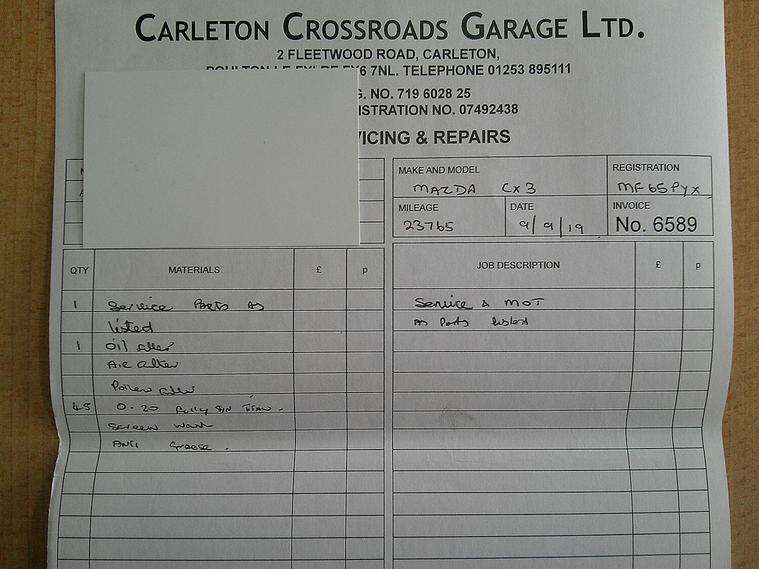 CARLETON CROSSROADS GARAGE LTD.
2 FLEETWOOD ROAD, CARLETON,
FY6 7NL. TELEPHONE 01253 895111
NO. 719 6028 25
NO. 07492438
& REPAIRS
MAKE AND MODEL
MAZDA CX3
REGISTRATION
MF65PYX
MILEAGE
23765
DATE
9/9/19
INVOICE
No. 6589
QTY MATERIALS £ p
1 Service Parts As
listed
1 Oil filter
Air filter
Pollen filter
4.5 0.20 Fully Syn
Screen Wash
Grease.
JOB DESCRIPTION £ p
Service & MOT
As Parts listed